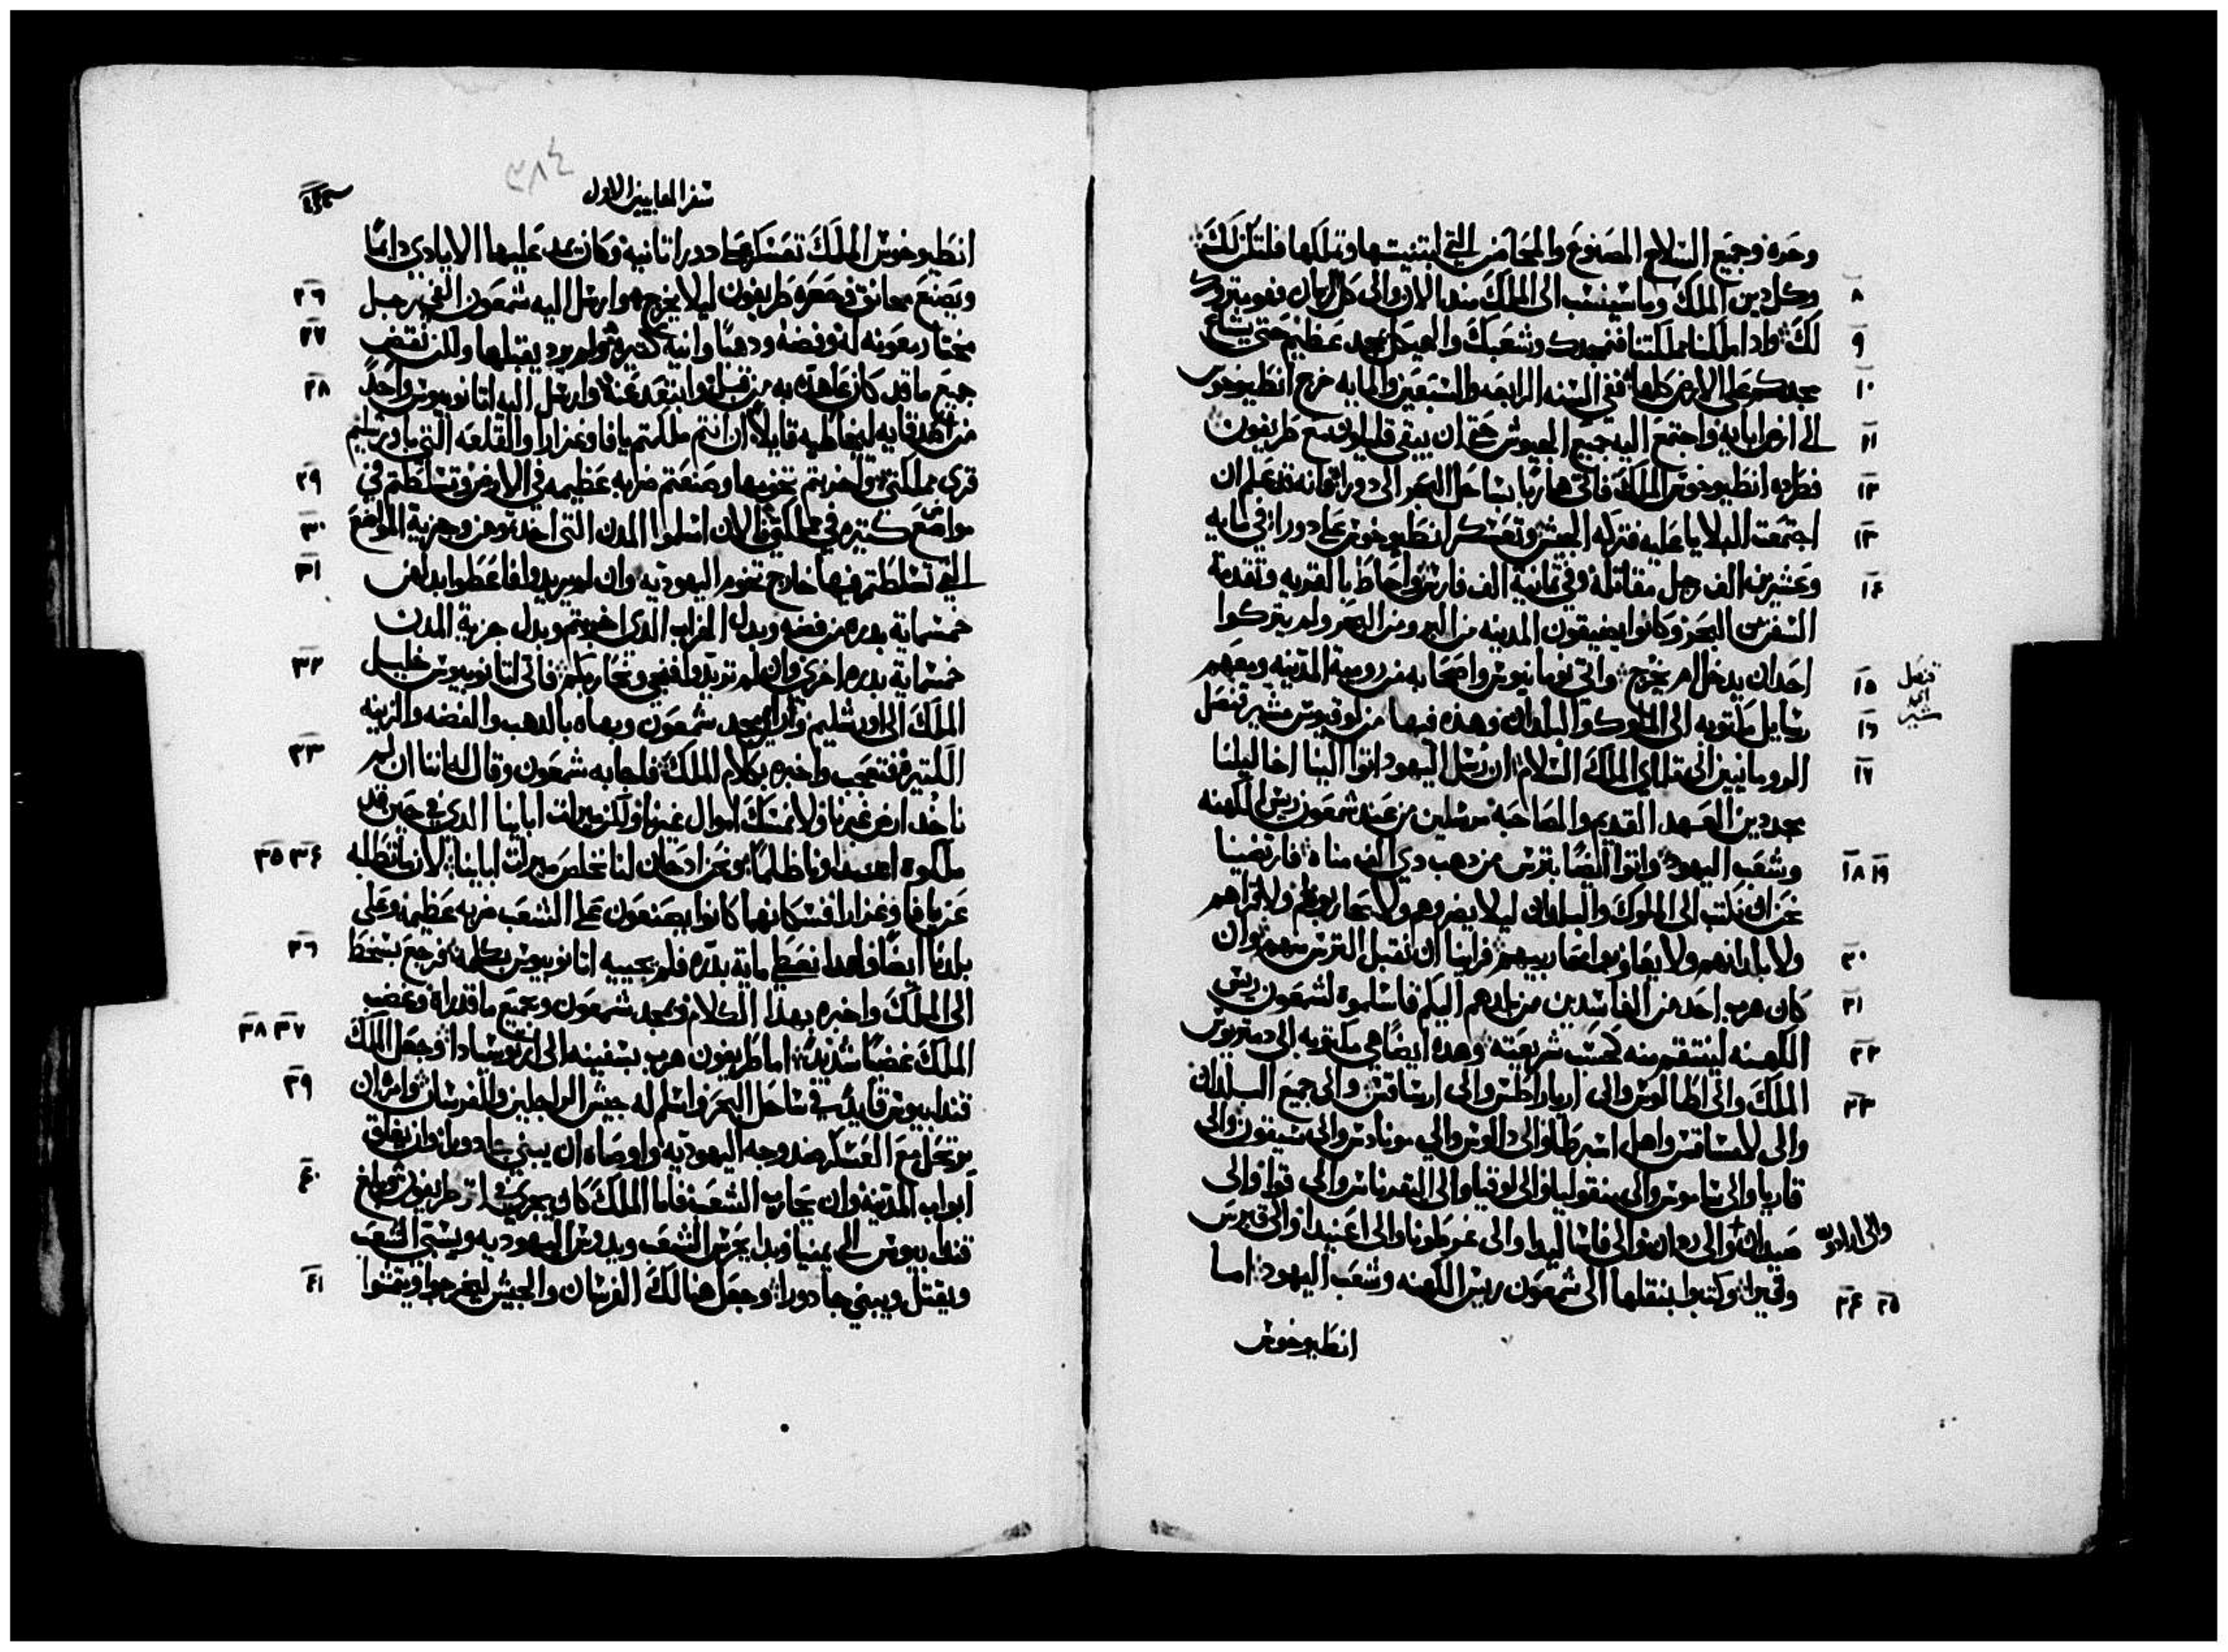 وحره وجميع السلاح المصنوع والمحاصن التي ابتنيتها وتملكها فلتكن لك
٨ وكل دين الملك وما سينسب الى الملك منذ الان والى كل الزمان فهو يترك
٩ لك واذا ملكنا مملكتنا فنمجدك وشعبك والهيكل بمجد عظيم حتى يشاع
١٠ مجدكم على الارض كلها ففي السنه الرابعه والسبعين والمايه خرج انطيوخوس
١١ الى ارض ابايه واجتمع اليه جميع الجيوش حتى ان يبقى قليلون مع طريفون
١٢ فطرده انطيوخوس الملك فاتى هاربا بساحل البحر الى دورا لانه قد علم ان
١٣ اجتمعت البلايا عليه فتركه الجيش وتعسكر انطيوخوس على دورا في مايه
١٤ وعشرين الف رجل مقاتله وفي ثمانية الف فارس واحاط بالقريه وتقدمة
السفن من البحر وكانوا يضيقون المدينه من البر ومن البحر ولم يتركوا
١٥ احدا ان يدخل ام يخرج واتى نومانيوس واصحابه من رومية المدينه ومعهم
قنصل
اي
مشير
١٦ رسايل مكتوبه الى الملوك والبلدان وهذه فيها من لوقيوس مشير قنصل
١٧ الرومانيين الى تلماي الملك السلام ان رسل اليهود اتوا الينا اخا ليلنا
مجددين العهد القديم والمصاحبة مرسلين من عند شمعون ريس الكهنه
١٨ ١٩ وشعب اليهود واتوا ايضا بترس من دهب دي الف مناه فارتضينا
نحن ان نكتب الى الملوك والبلدان ليلا يضروهم ولا يحاربوهم ولا قراهم
٢٠ ولا بلدانهم ولا يعاونوا محاربيهم فراينا ان نقبل الترس منهم وان
٢١ كان هرب احد من الفاسدين من بلدهم اليكم فاسلموه لشمعون ريس
٢٢ الكهنه لينتقم منه كحسب شريعته وهذه ايضا هي مكتوبه الى دمتريوس
٢٣ الملك والى اطالوس والى ارياراطس والى ارساقس والى جميع البلدان
والى لامساقس واهل اسبرطا والى دالوس والى مونادس والى سيقون والى
قاريا والى ساموس والى بنفوليا والى لوقيا والى القدرناس والى قوا والى
صيدان والى رودس والى فاساليدا والى غرطونا والى اغنيدا والى قبرس
والى ارادون
٢٤ ٢٥ وقيران وكتبوا بنقلها الى شمعون ريس الكهنه وشعب اليهود اما
انطيوخوس
٣٨٤
سفر المقابيين الاول
انطيوخوس الملك تعسكر على دورا ثانية وكانت عليها الايادي دايما
٢٦ ويصنع مجانق وحصره طريفون ليلا يخرج وارسل اليه شمعون الفي رجل
٢٧ مختار معونه له وفضه ودهبا وانيه كثيره ولم يرد يقبلها ولكن نقض
٢٨ جميع ما قد كان عاهده به من قبل وابتعد عنه وارسل اليه اتانوبيوس واحد
من اصدقايه ليخاطبه قايلا ان انتم ملكتم يافا وغزارا والقلعه التي باورشليم
٢٩ قرى مملكتي واخربتم تخومها وصنعتم ضربه عظيمه في الارض وتسلطتم في
٣٠ مواضع كتيره في مملكتي فالان اسلموا المدن التى اخدتوهن وجزية المواضع
٣١ التي تسلطتم فيها خارج تخوم اليهوديه وان لم تريدوا فاعطوا بدلهن
خمسماية بدره من فضه وبدل الخراب الذي اخربتم وبدل جزية المدن
٣٢ خمسماية بدره اخرى وان لم تريدوا فنجي ونحاربكم فاتى اتانوبيوس خليل
الملك الى اورشليم وراى مجد شمعون وبهاه بالدهب والفضه والزينه
٣٣ الكتيره فتعجب واخبره بكلام الملك فاجابه شمعون وقال له اننا ان لم
ناخد ارض غيرنا ولا نمسك اموال غيرنا ولكن ميرات ابايَنا الذي في حين قد
٣٤ ٣٥ ملكوه اعداونا ظلما ونحن اد كان لنا نخلص ميرات ابايَنا الان ما تطلبه
عن يافا وغزارا فسكانهما كانوا يصنعون على الشعب ضربه عظيمه وعلى
٣٦ بلدنا ايضا ولهذا نعطي ماية بدره فلم يجيبه اتانوبيوس بكلمه فرجع بسخط
الى الملك واخبره بهذا الكلام ومجد شمعون وجميع ما قد راه وغضب
٣٧ ٣٨ الملك غضبا شديدا اما طريفون هرب بسفينه الى ارتوسادا وجعل الملك
٣٩ قندابيوس قايدا في ساحل البحر واسلم له جيش الراجلين والفرسان وامر ان
يرتحل مع العسكر ضد وجه اليهوديه واوصاه ان يبني جادورا وان يغلق
٤٠ ابواب المدينه وان يحارب الشعب فاما الملك كان يجري في اتر طريفون وبلغ
قندابيوس الى يمنيا وبدا يحرس الشعب ويدوس اليهوديه ويسبي الشعب
٤١ ويقتل ويبني جادورا وجعل هنالك الفرسان والجيش ليخرجوا ويمشوا